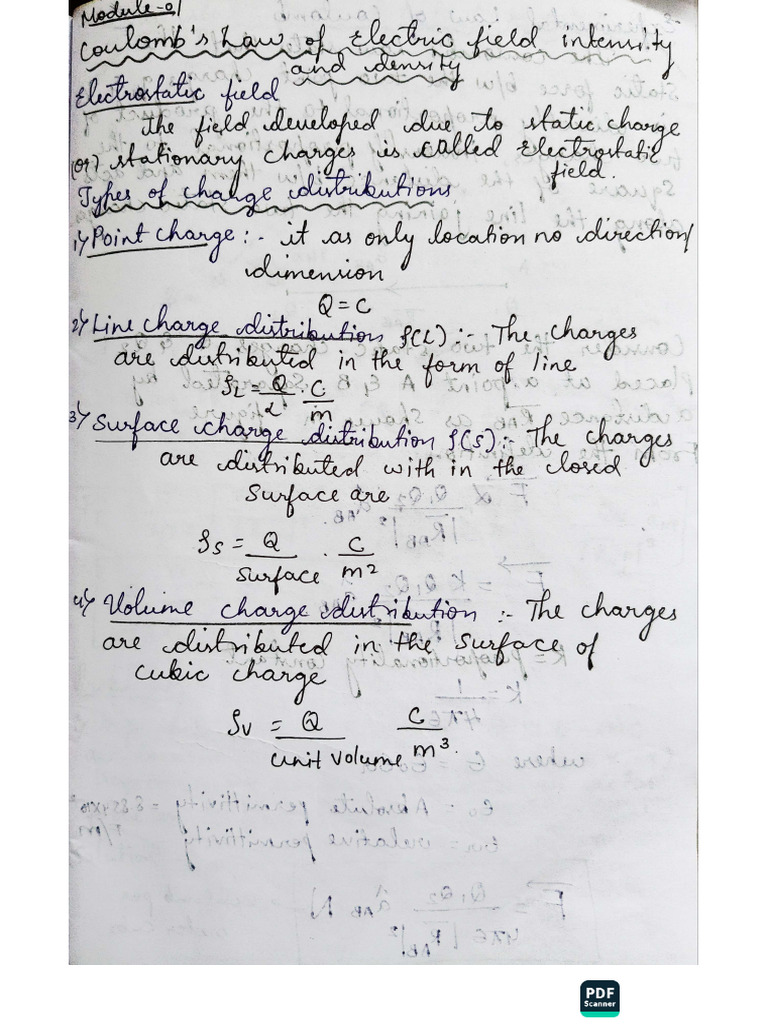 Module-01
Coulomb's Law of Electric field intensity
and density
Electrostatic field
The field developed due to static charge
(or) stationary charges is called Electrostatic
field.
Types of charge distributions
1) Point Charge :- it as only location no direction/
dimension
Q = C
2) Line charge distribution ρ(L) :- The charges
are distributed in the form of line
ρL = Q/L . C/m
3) Surface charge distribution ρ(s) :- The charges
are distributed with in the closed
Surface are
ρs = Q/Surface . C/m²
4) Volume charge distribution :- The charges
are distributed in the surface of
cubic charge
ρv = Q/unit volume C/m³.
PDF
Scanner